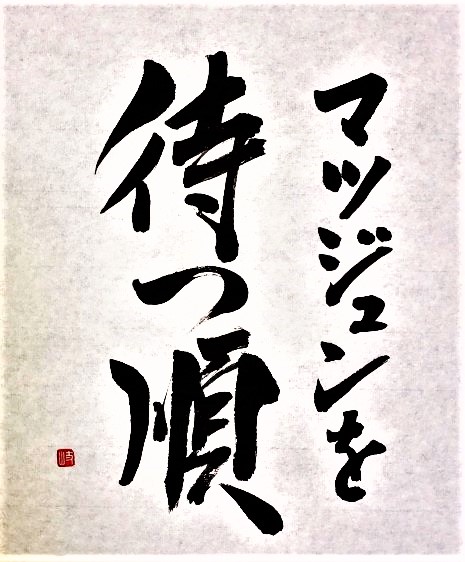 マツジュンを
待つ順